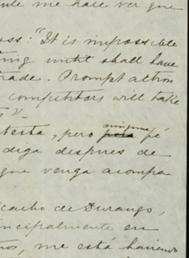 me hace ver que
ess. "It is impossible
thing until shall have
trade. Prompt action
competitors will take
g".
berta, pero ninguna fé
diga despues de
que venga acompa
cacho de Durango,
incipalmente en
nos, me está haciendo